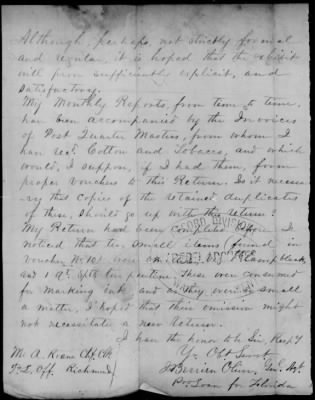 Although, perhaps, not strictly formal
and regular, it is hoped that the exhibit
will prove sufficiently explicit, and
satisfactory.
My Monthly Reports, from time to time,
have been accompanied by the Invoices
of Post Quarter Masters, from whom I
have recd Cotton and Tobacco, and which
would, I suppose, if I had them, form
proper vouchers to this Return. Is it necess-
ary that copies of the retained duplicates
of these, should go up with this return?
My Return had been completed before I
noticed that two small items found in
Voucher No 101 were
and 1 Qt Spts turpentine, these were consumed
for marking and as they were so small
a matter, I hoped that their omission might
not necessitate a new Return.
I have the honor to be Sir, Respy
Yr Obt Servt
Berrien Oliver, Genl Agt
Pro Loan for Florida
Mr A. Roane Chf Clk
Pr L. Off. Richmond
RECORD DIVISION